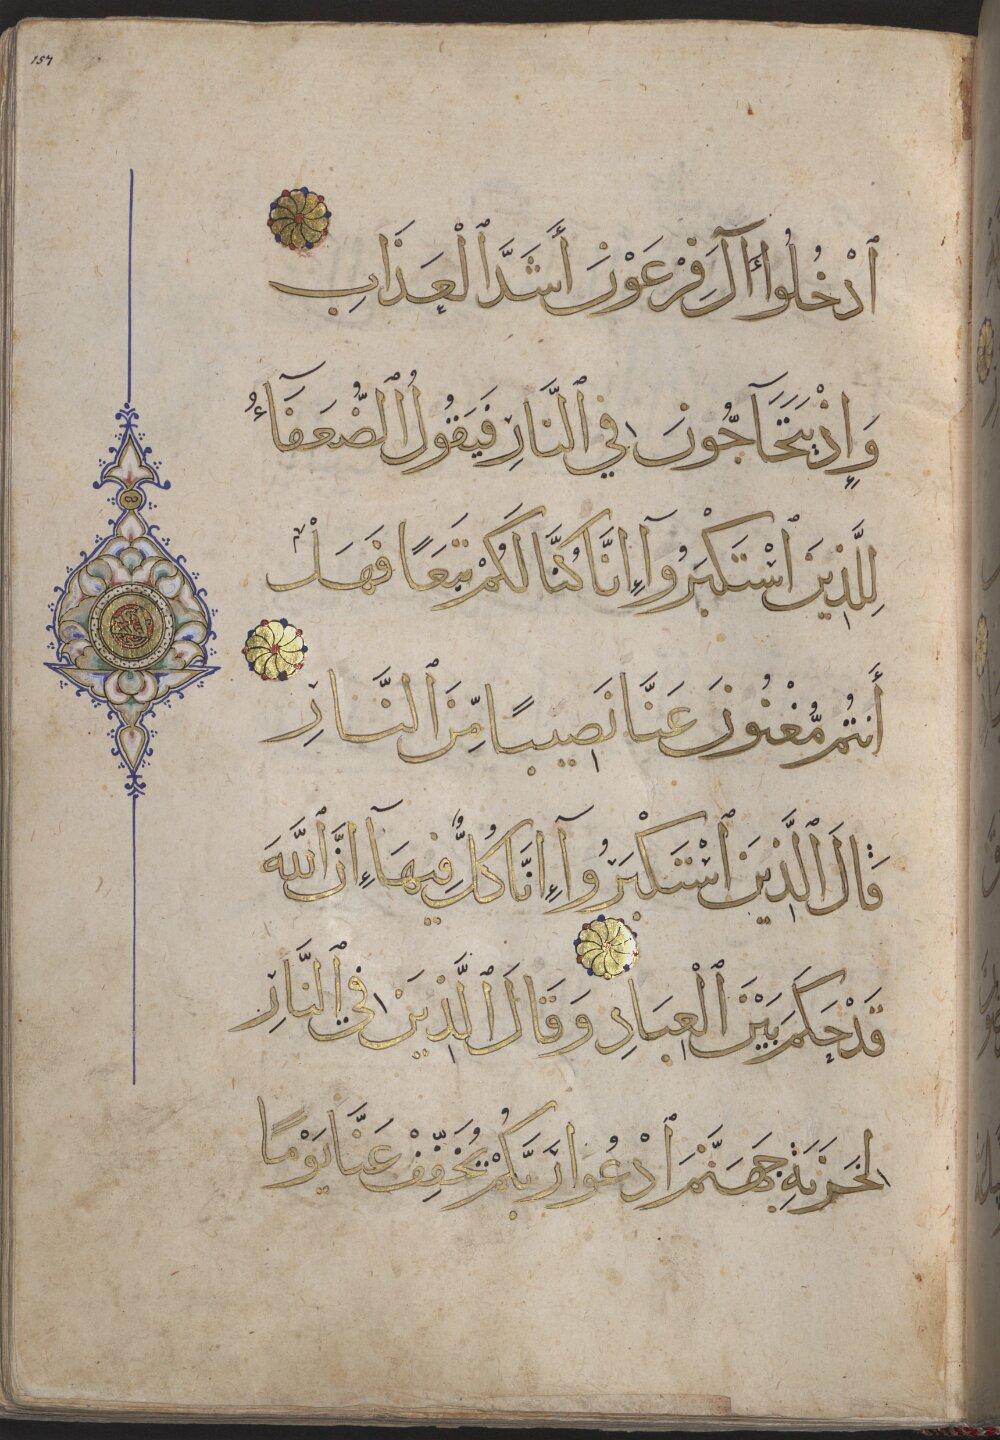 157
ٱدْخُلُوٓا۟ ءَالَ فِرْعَوْنَ أَشَدَّ ٱلْعَذَابِ
وَإِذْ يَتَحَآجُّونَ فِي ٱلنَّارِ فَيَقُولُ ٱلضُّعَفَٰٓؤُ
لِلَّذِينَ ٱسْتَكْبَرُوٓا إِنَّا كُنَّا لَكُمْ تَبَعًا فَهَلْ
أَنتُم مُّغْنُونَ عَنَّا نَصِيبًا مِّنَ ٱلنَّارِ
قَالَ ٱلَّذِينَ ٱسْتَكْبَرُوٓا إِنَّا كُلٌّ فِيهَآ إِنَّ ٱللَّهَ
قَدْ حَكَمَ بَيْنَ ٱلْعِبَادِ وَقَالَ ٱلَّذِينَ فِي ٱلنَّارِ
لِخَزَنَةِ جَهَنَّمَ ٱدْعُوا رَبَّكُمْ يُخَفِّفْ عَنَّا يَوْمًا